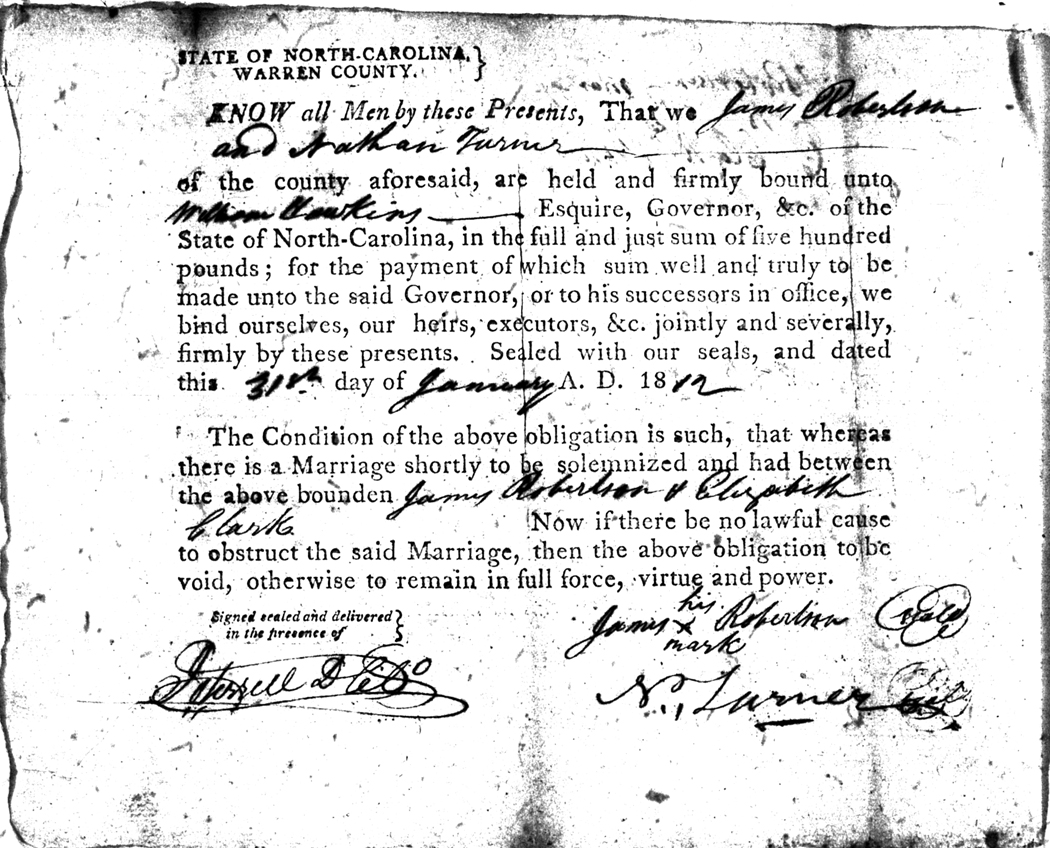 STATE OF NORTH-CAROLINA,}
WARREN COUNTY.
KNOW all Men by these Presents, That we James Robertson
and Nathan Turner
of the county aforesaid, are held and firmly bound unto
William Hawkins Esquire, Governor, &c. of the
State of North-Carolina, in the full and just sum of five hundred
pounds; for the payment of which sum well and truly to be
made unto the said Governor, or to his successors in office, we
bind ourselves, our heirs, executors, &c. jointly and severally,
firmly by these presents. Sealed with our seals, and dated
this 31st day of January A. D. 1812
The Condition of the above obligation is such, that whereas
there is a Marriage shortly to be solemnized and had between
the above bounden James Robertson & Elizabeth
Clark Now if there be no lawful cause
to obstruct the said Marriage, then the above obligation to be
void, otherwise to remain in full force, virtue and power.
Signed sealed and delivered}
in the presence of
his
James x Robertson seal
mark
N. Turner seal